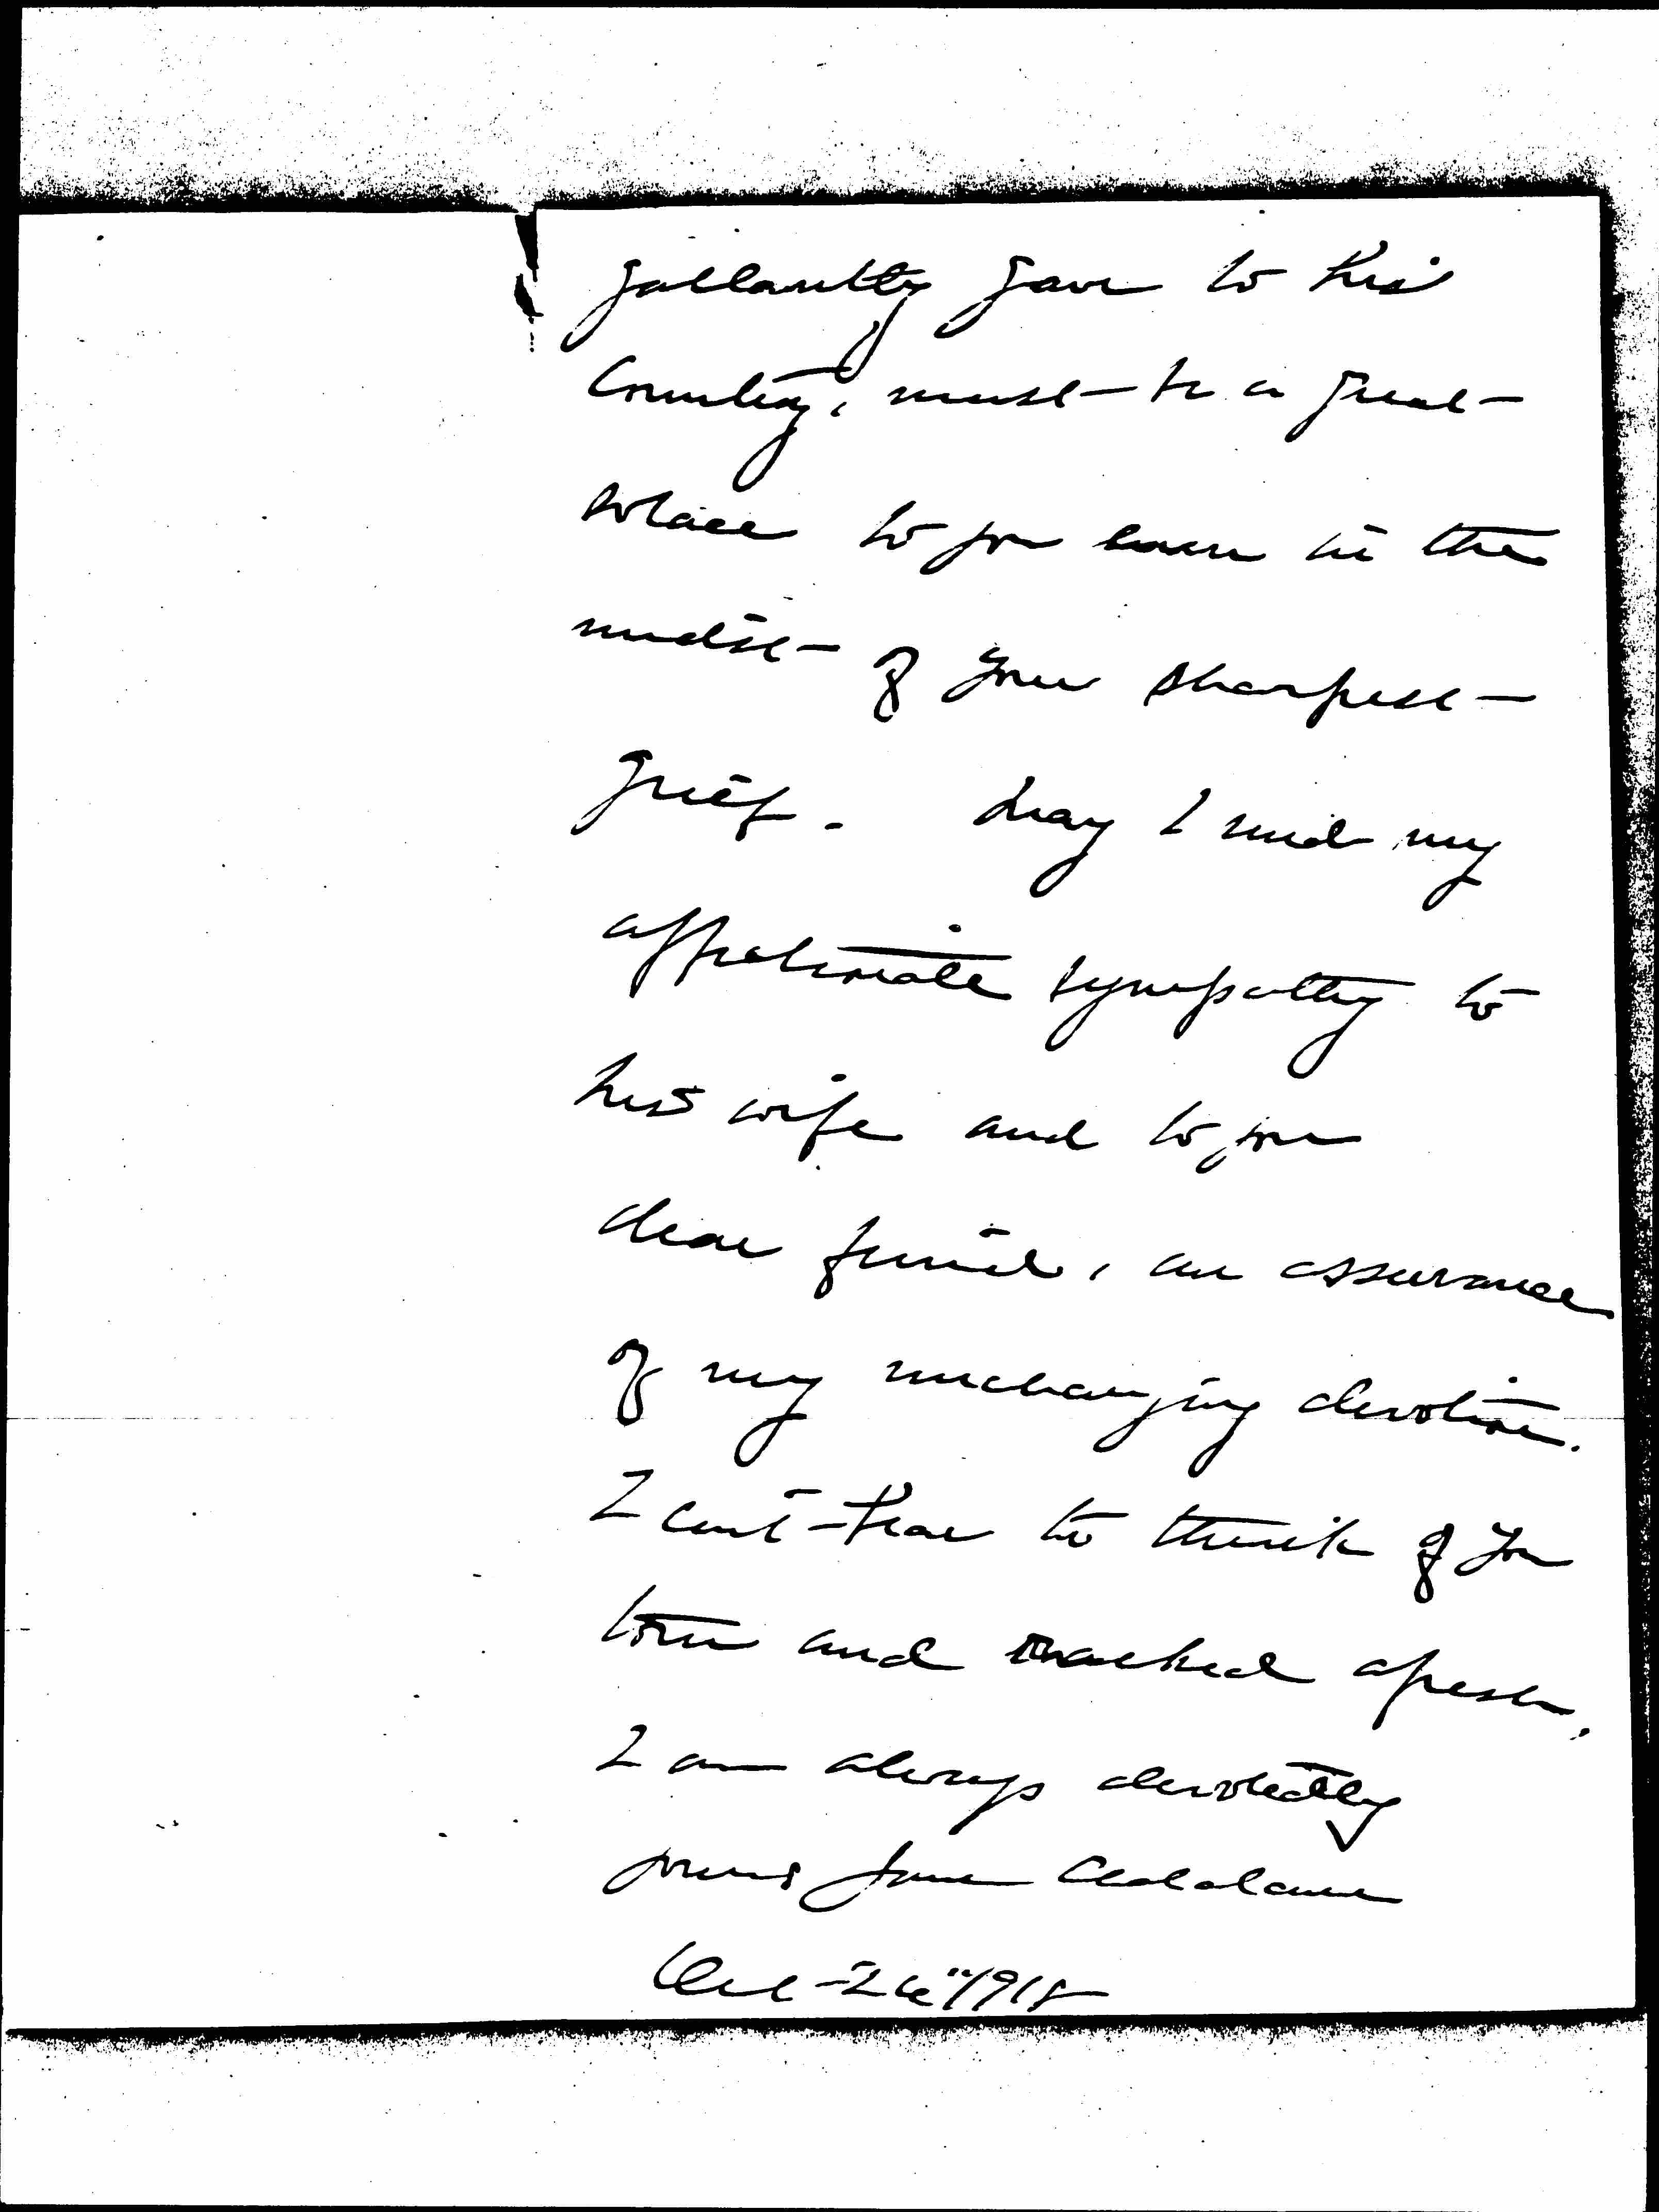 gallantly gave to his
Country, must be a great
solace to you even in the
midst of your sharpest
grief. May I send my
affectionate sympathy to
his wife and to you
dear friend, an assurance
of my unchanging devotion.
I can't bear to think of you
torn and racked afresh.
I am always devotedly
yours Jane Addams
Oct 26" 1918